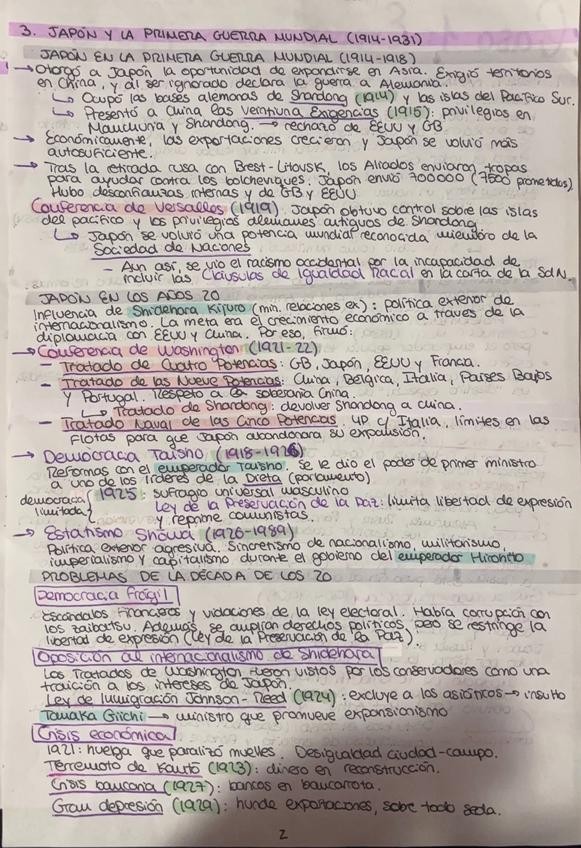 3. JAPÓN Y LA PRIMERA GUERRA MUNDIAL (1914-1931)
JAPÓN EN LA PRIMERA GUERRA MUNDIAL (1914-1918)
→ Otorgó a Japón la oportunidad de expandirse en Asia. Exigió territorios
en China, y al ser ignorado declara la guerra a Alemania.
↳ Ocupó las bases alemanas de Shandong (1914) y las islas del Pacífico Sur.
↳ Presentó a China las Veintiuna Exigencias (1915): privilegios en
Manchuria y Shandong. → rechazo de EEUU y GB
→ Económicamente, las exportaciones crecieron y Japón se volvió más
autosuficiente.
→ Tras la retirada rusa con Brest-Litovsk, los Aliados enviaron tropas
para ayudar contra los bolcheviques: Japón envió 700000 (7500 prometidos)
Hubo desconfianzas internas y de GB y EEUU.
Conferencia de Versalles (1919). Japón obtuvo control sobre las islas
del pacífico y los privilegios alemanes antiguos de Shandong.
↳ Japón se volvió una potencia mundial reconocida miembro de la
Sociedad de Naciones
- Aun así, se vio el racismo occidental por la incapacidad de
incluir las Cláusulas de Igualdad Racial en la carta de la SdN.
JAPÓN EN LOS AÑOS 20
Influencia de Shidehara Kijuro (min. relaciones ex.): política exterior de
internacionalismo. La meta era el crecimiento económico a través de la
diplomacia con EEUU y China. Por eso, firmó:
→ Conferencia de Washington (1921-22)
- Tratado de Cuatro Potencias: GB, Japón, EEUU y Francia.
- Tratado de las Nueve Potencias: China, Bélgica, Italia, Países Bajos
y Portugal. Respeto a la soberanía China.
↳ Tratado de Shandong: devolver Shandong a China.
- Tratado Naval de las Cinco Potencias. 4P c/ Italia, límites en las
flotas para que Japón abandonara su expansión.
→ Democracia Taisho (1918-1926)
Reformas con el emperador Taisho. Se le dio el poder de primer ministro
a uno de los líderes de la Dieta (parlamento)
democracia limitada { 1925: sufragio universal masculino
Ley de la Preservación de la Paz: limita libertad de expresión
y reprime comunistas.
→ Estatismo Showa (1926-1989)
Política exterior agresiva. Sincretismo de nacionalismo, militarismo,
imperialismo y capitalismo durante el gobierno del emperador Hirohito
PROBLEMAS DE LA DÉCADA DE LOS 20
Democracia Frágil
Escándalos financieros y violaciones de la ley electoral. Había corrupción con
los zaibatsu. Además, se amplían derechos políticos, pero se restringe la
libertad de expresión (Ley de la Preservación de la Paz).
Oposición al internacionalismo de Shidehara
Los Tratados de Washington fueron vistos por los conservadores como una
traición a los intereses de Japón.
Ley de Inmigración Johnson-Reed (1924): excluye a los asiáticos → insulto
Tanaka Giichi → ministro que promueve expansionismo
Crisis económica
1921: huelga que paralizó muelles. Desigualdad ciudad-campo.
Terremoto de Kanto (1923): dinero en reconstrucción.
Crisis bancaria (1927): bancos en bancarrota.
Gran depresión (1929): hunde exportaciones, sobre todo seda.
2